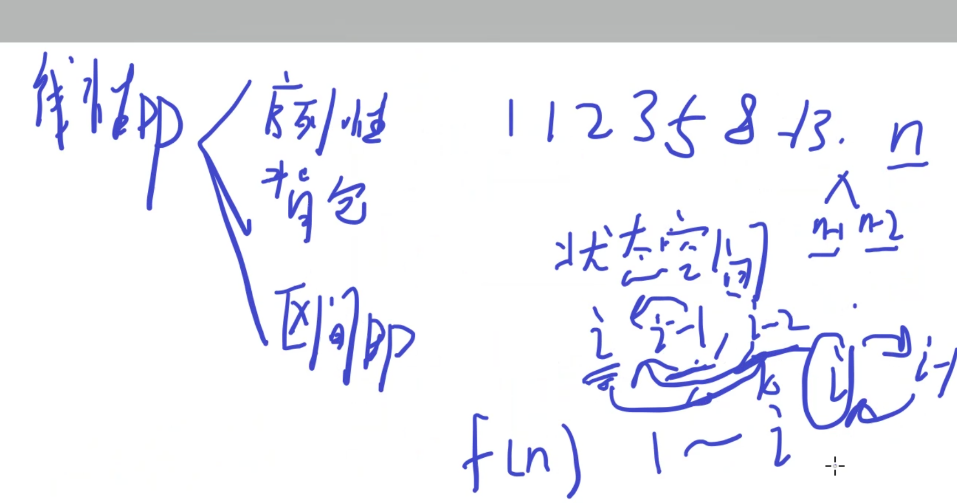 线性DP
序列性
背包
区间DP
1 1 2 3 5 8 13. n
n-1 n-2
状态空间
i i-1, i-2
i i-1
k
f(n) 1~i